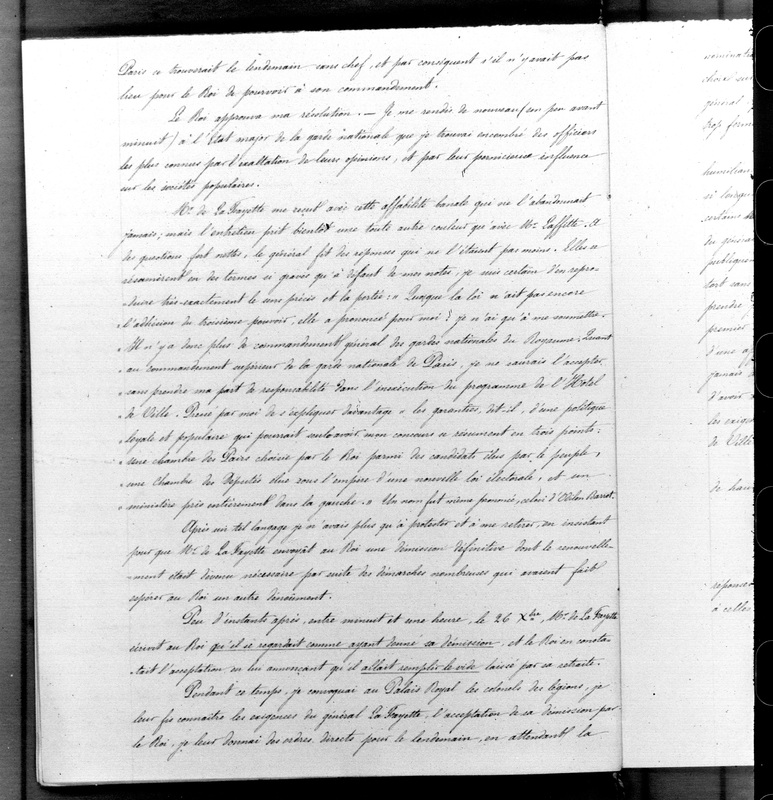 Paris se trouverait le lendemain sans chef, et par conséquent s'il n'y avait pas
lieu pour le Roi de pourvoir à son commandement.
Le Roi approuva ma résolution. — Je me rendis de nouveau (un peu avant
minuit) à l'Etat major de la garde nationale que je trouvai encombré des officiers
les plus connus par l'exaltation de leurs opinions, et par leur pernicieuse influence
sur les sociétés populaires.
Mr. de La Fayette me reçut avec cette affabilité banale qui ne l'abandonnait
jamais; mais l'entretien prit bientôt une toute autre couleur qu'avec Mr. Laffitte. A
des questions fort nettes, le général fit des réponses qui ne l'étaient pas moins. Elles se
résumèrent en des termes si graves qu'à défaut de mes notes, je suis certain d'en repro-
-duire très-exactement le sens précis et la portée: « Quoique la loi n'ait pas encore
« l'adhésion du troisième pouvoir, elle a prononcé pour moi; je n'ai qu'à me soumettre.
« Il n'y a donc plus de commandement général des gardes nationales du Royaume. Quant
« au commandement supérieur de la garde nationale de Paris, je ne saurais l'accepter
« sans prendre ma part de responsabilité dans l'inexécution du programme de l'Hôtel
« de Ville. Pressé par moi de s'expliquer davantage « les garanties, dit-il, d'une politique
« loyale et populaire qui pourrait seule avoir mon concours se résument en trois points:
« une chambre des Pairs choisie par le Roi parmi des candidats élus par le peuple,
« une Chambre des Députés élue sous l'empire d'une nouvelle loi électorale, et un
« ministère pris entièrement dans la gauche. » Un nom fut même prononcé, celui d'Odilon Barrot.
Après un tel langage je n'avais plus qu'à protester et à me retirer, en insistant
pour que Mr. de La Fayette envoyât au Roi une démission définitive dont le renouvelle-
-ment était devenu nécessaire par suite des démarches nombreuses qui avaient fait
espérer au Roi un autre dénoûment.
Peu d'instants après, entre minuit et une heure, le 26 Xbre, Mr. de La Fayette
écrivit au Roi qu'il se regardait comme ayant donné sa démission, et le Roi en consta-
-tait l'acceptation en lui annonçant qu'il allait remplir le vide laissé par sa retraite.
Pendant ce temps, je convoquai au Palais Royal les colonels des légions, je
leur fis connaître les exigences du général La Fayette, l'acceptation de sa démission par
le Roi, je leur donnai des ordres directs pour le lendemain, en attendant la